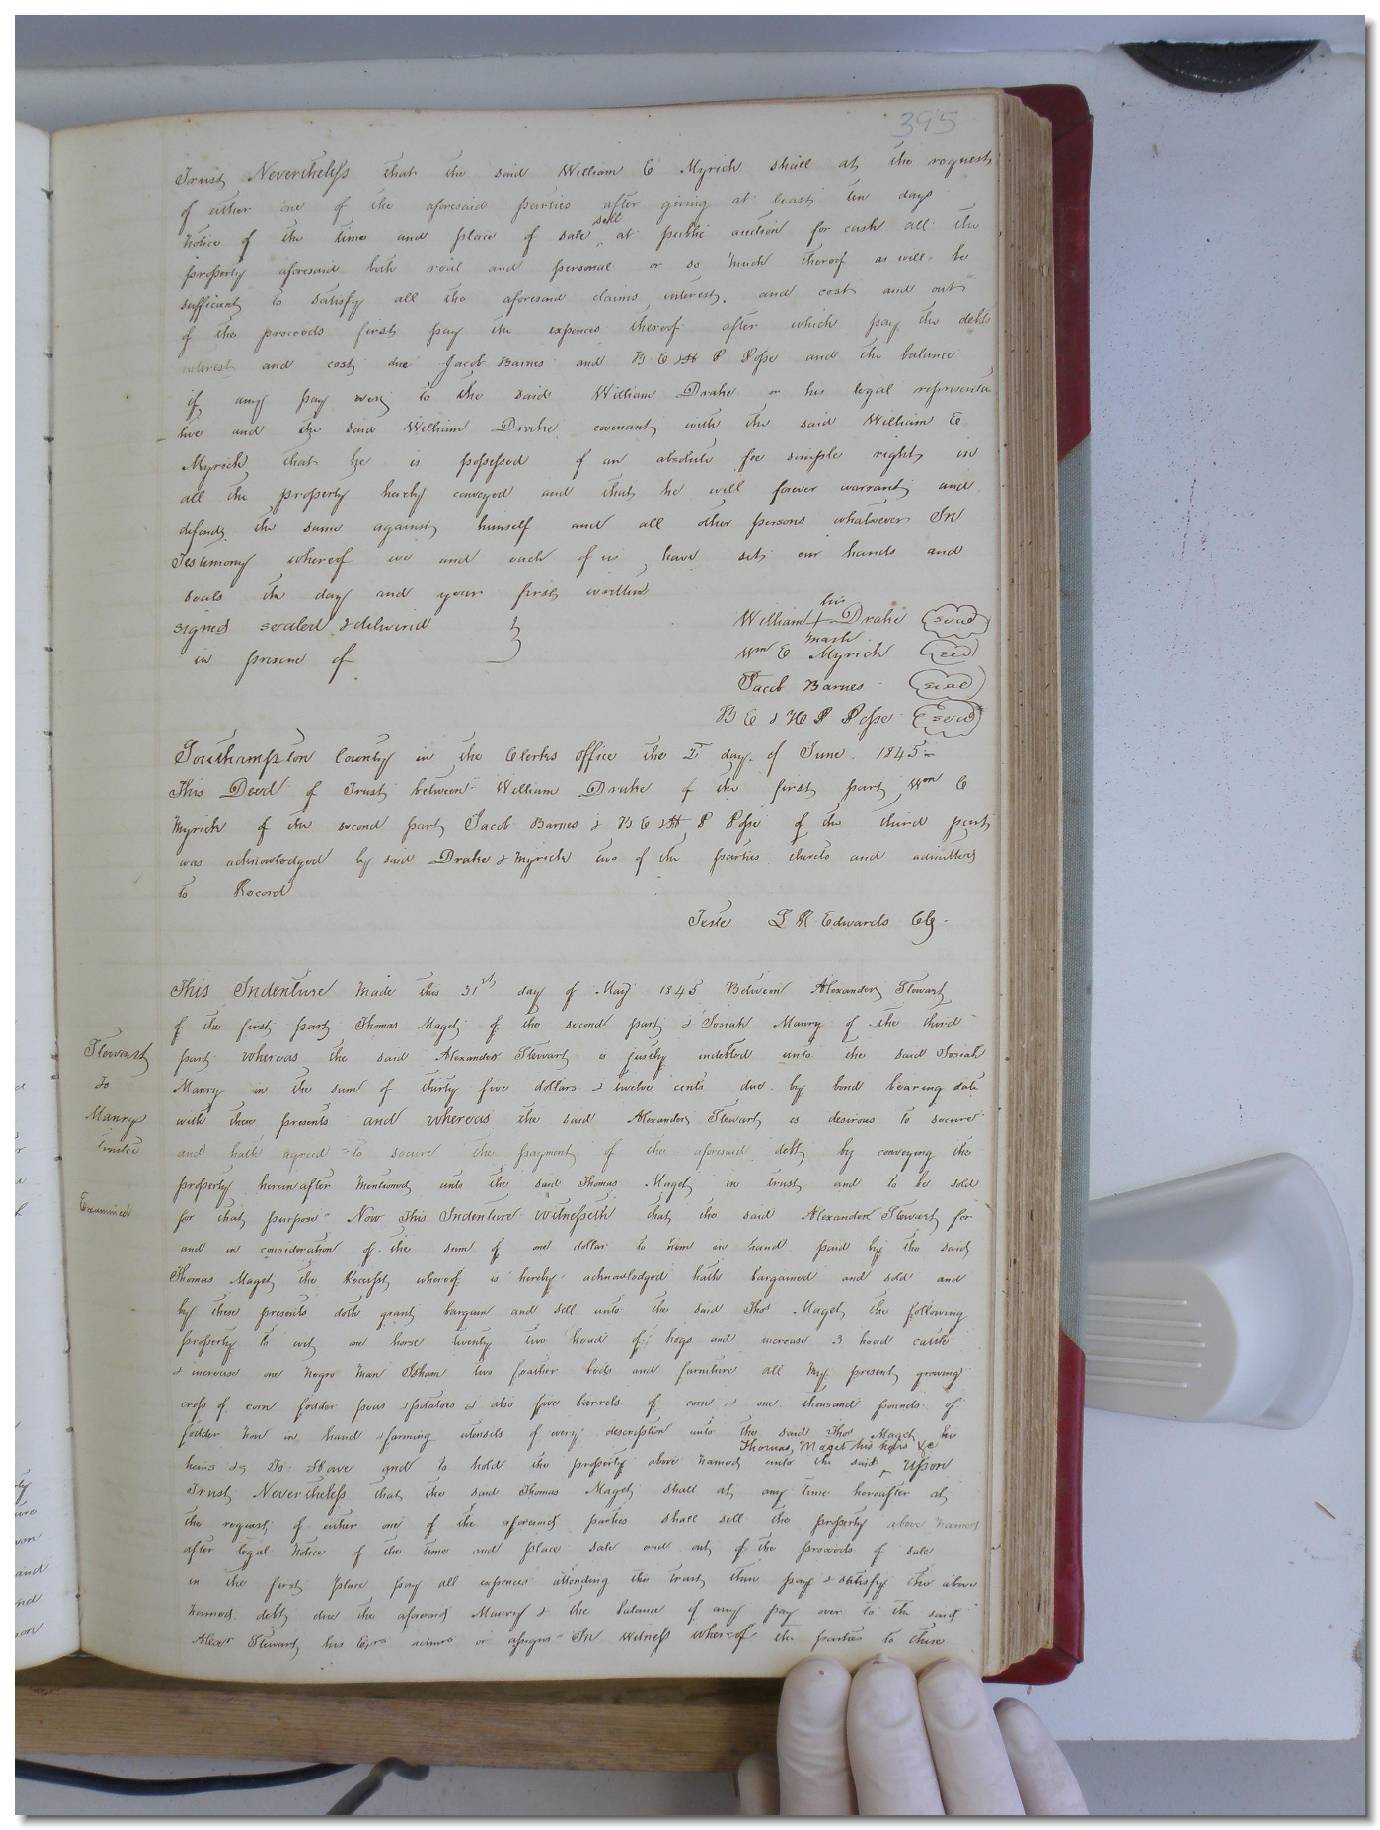 395
Trust Nevertheless that the said William E Myrick shall at the request
of either one of the aforesaid parties after giving at least ten days
notice of the time and place of sale sell at public auction for cash all the
property aforesaid both real and personal or so much thereof as will be
sufficient to satisfy all the aforesaid claims interest and cost and out
of the proceeds first pay the expences thereof after which pay the debts
interest and cost due Jacob Barnes and B E & H P Pope and the balance
if any pay over to the said William Drake or his legal representa
tive and the said William Drake covenant with the said William E
Myrick that he is possessed of an absolute fee simple right in
all the property hereby conveyed and that he will forever warrant and
defend the same against himself and all other persons whatever In
Testimony whereof we and each of us have set our hands and
seals the day and year first written
signed sealed & delivered
in presence of
his
William + Drake seal
mark
Wm E Myrick seal
Jacob Barnes seal
B E & H P Pope seal
Southampton County in the Clerks office the 2d day of June 1845
This Deed of Trust between William Drake of the first part Wm E
Myrick of the second part Jacob Barnes & B E & H P Pope of the third part
was acknowledged by said Drake & Myrick two of the parties thereto and admitted
to Record
Teste L R Edwards Clk
This Indenture made this 31st day of May 1845 Between Alexander Stewart
of the first part Thomas Maget of the second part & Josiah Manry of the third
part whereas the said Alexander Stewart is justly indebted unto the said Josiah
Manry in the sum of thirty five dollars & twelve cents due by bond bearing date
with these presents and whereas the said Alexander Stewart is desirous to secure
and hath agreed to secure the payment of the aforesaid debt by conveying the
property herein after mentioned unto the said Thomas Maget in trust and to be sold
for that purpose Now This Indenture Witnesseth that the said Alexander Stewart for
and in consideration of the sum of one dollar to him in hand paid by the said
Thomas Maget the Receipt whereof is hereby acknowledged hath bargained and sold and
by these presents doth grant bargain and sell unto the said Thos Maget the following
property to wit one horse twenty two head of hogs and increase 3 head cattle
& increase one negro man Isham two feather beds and furniture all my present growing
crop of corn fodder peas & potatoes & also five barrels of corn & one thousand pounds of
fodder now in hand & farming utensils of every description unto the said Thos Maget his
heirs &c To Have and to hold the property above named unto the said Thomas Maget his heirs &c Upon
Trust Nevertheless that the said Thomas Maget shall at any time hereafter at
the request of either one of the aforesaid parties shall sell the property above named
after legal notice of the time and place sale and out of the proceeds of sale
in the first place pay all expences attending this trust then pay & satisfy the above
named debt due the aforesaid Manry & the balance if any pay over to the said
Alexr Stewart his Exrs admrs or assigns In Witness whereof the parties to these
Stewart
To
Manry
trustee
Examined